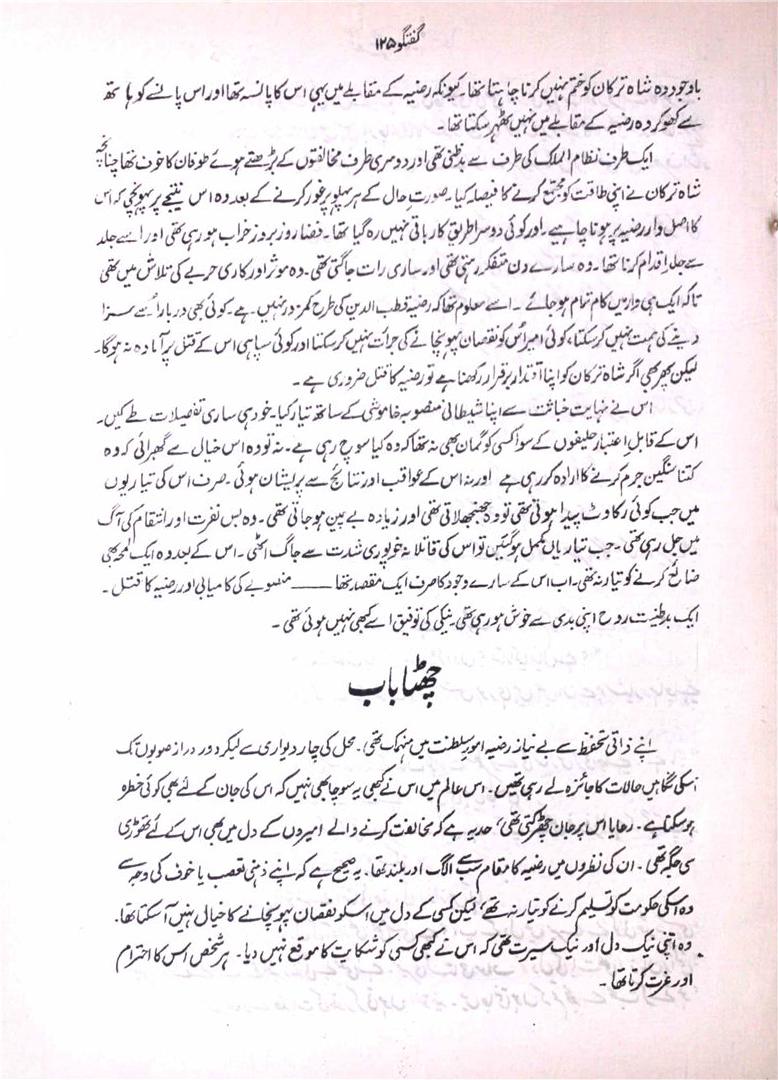 گفتگو ۱۲۵
باوجود وہ شاہ ترکان کو ختم نہیں کرنا چاہتا تھا۔ کیونکہ رضیہ کے مقابلے میں یہی اس کا پانسہ تھا اور اس پانسے کو ہاتھ
سے کھو کر وہ رضیہ کے مقابلے میں نہیں ٹھہر سکتا تھا۔
ایک طرف نظام الملک کی طرف سے بدظنی تھی اور دوسری طرف مخالفتوں کے بڑھتے ہوئے طوفان کا خوف تھا چنانچہ
شاہ ترکان نے اپنی طاقت کو مجتمع کرنے کا فیصلہ کیا۔ صورت حال کے ہر پہلو پر غور کرنے کے بعد وہ اس نتیجے پر پہونچی کہ اس
کا اصل وار رضیہ پر ہونا چاہیے۔ اور کوئی دوسرا طریق کار باقی نہیں رہ گیا تھا۔ فضا روز بروز خراب ہو رہی تھی اور اسے جلد
سے جلد اقدام کرنا تھا۔ وہ سارے دن متفکر رہتی تھی اور ساری رات جاگتی تھی۔ وہ موثر اور کاری حربے کی تلاش میں تھی
تاکہ ایک ہی وار میں کام تمام ہو جائے۔ اسے معلوم تھا کہ رضیہ قطب الدین کی طرح کمزور نہیں ہے۔ کوئی بھی دربار اسے سزا
دینے کی ہمت نہیں کر سکتا، کوئی امیر اس کو نقصان پہونچانے کی جرات نہیں کر سکتا اور کوئی سپاہی اس کے قتل پر آمادہ نہ ہو گا۔
لیکن پھر بھی اگر شاہ ترکان کو اپنا اقتدار برقرار رکھنا ہے تو رضیہ کا قتل ضروری ہے۔
اس نے نہایت خباثت سے اپنا شیطانی منصوبہ خاموشی کے ساتھ تیار کیا۔ خود ہی ساری تفصیلات طے کیں۔
اس کے قابل اعتبار حلیفوں کے سوا کسی کو گمان بھی نہ تھا کہ وہ کیا سوچ رہی ہے۔ نہ تو وہ اس خیال سے گھبرائی کہ وہ
کتنا سنگین جرم کرنے کا ارادہ کر رہی ہے اور نہ اس کے عواقب اور نتائج سے پریشان ہوئی۔ صرف اس کی تیاریوں
میں جب کوئی رکاوٹ پیدا ہوتی تھی تو وہ جھنجھلاتی تھی اور زیادہ بے چین ہو جاتی تھی۔ وہ بس نفرت اور انتقام کی آگ
میں جل رہی تھی۔ جب تیاریاں مکمل ہو گئیں تو اس کی قاتلانہ خو پوری شدت سے جاگ اٹھی۔ اس کے بعد وہ ایک لمحہ بھی
ضائع کرنے کو تیار نہ تھی۔ اب اس کے سارے وجود کا صرف ایک مقصد تھا ــــــ منصوبے کی کامیابی اور رضیہ کا قتل۔
ایک بدطینت روح اپنی بدی سے خوش ہو رہی تھی۔ نیکی کی توفیق اسے کبھی نہیں ہوئی تھی۔
چھٹا باب
اپنے ذاتی تحفظ سے بے نیاز رضیہ امور سلطنت میں منہمک تھی۔ محل کی چار دیواری سے لیکر دور دراز صوبوں تک
اسکی نگاہیں حالات کا جائزہ لے رہی تھیں۔ اس عالم میں اس نے کبھی یہ سوچا بھی نہیں کہ اس کی جان کے لئے بھی کوئی خطرہ
ہو سکتا ہے۔ رعایا اس پر جان چھڑکتی تھی، حد یہ ہے کہ مخالفت کرنے والے امیروں کے دل میں بھی اس کے لئے تھوڑی
سی جگہ تھی۔ ان کی نظروں میں رضیہ کا مقام سب سے الگ اور بلند تھا۔ یہ صحیح ہے کہ اپنے ذہنی تعصب یا خوف کی وجہ سے
وہ اسکی حکومت کو تسلیم کرنے کو تیار نہ تھے، لیکن کسی کے دل میں اسکو نقصان پہونچانے کا خیال نہیں آ سکتا تھا۔
وہ اتنی نیک دل اور نیک سیرت تھی کہ اس نے کبھی کسی کو شکایت کا موقع نہیں دیا۔ ہر شخص اس کا احترام
اور عزت کرتا تھا۔